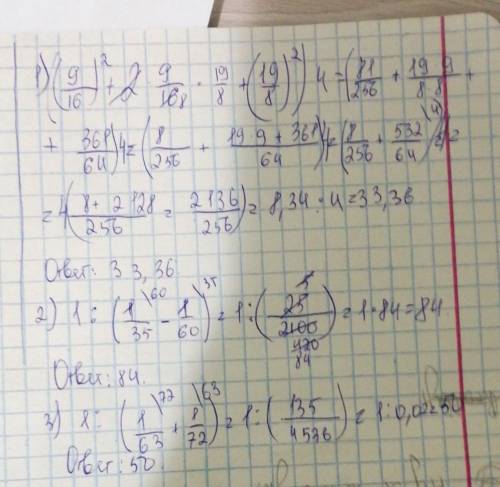 1) ((9/16)² + 2 9/16₈ · 19/8 + (19/8)²) 4 = (81/256 + 19 9/8 8 +
+ 361/64) 4 = (8/256 + 19 9 + 361/64) 4 = (8/256 + 532/64 \⁴) 4 =
= 4 (8 + 2128/256 = 2136/256) = 8,34 · 4 = 33,36
Ответ: 33,36.
2) 1 : (1/35 \⁶⁰ - 1/60 \³⁵) = 1 : (25/2100) = 1 · 84 = 84.
5
420
84
Ответ: 84.
3) 1 : (1/63 \⁷² + 1/72 \⁶³) = 1 : (135/4536) = 1 : 0,02 = 50
Ответ: 50.